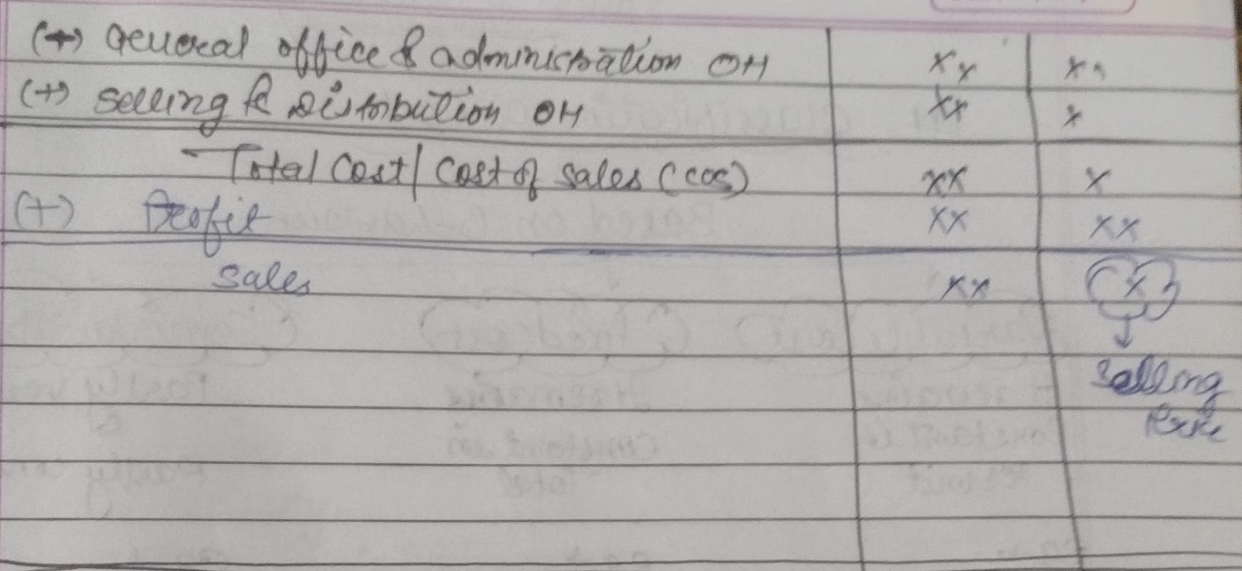 (+) General office & administration OH xx xx
(+) Selling & Distribution OH xx x
Total Cost / Cost of Sales (cos) xx x
(+) Profit xx xx
Sales xx x
Selling
Price